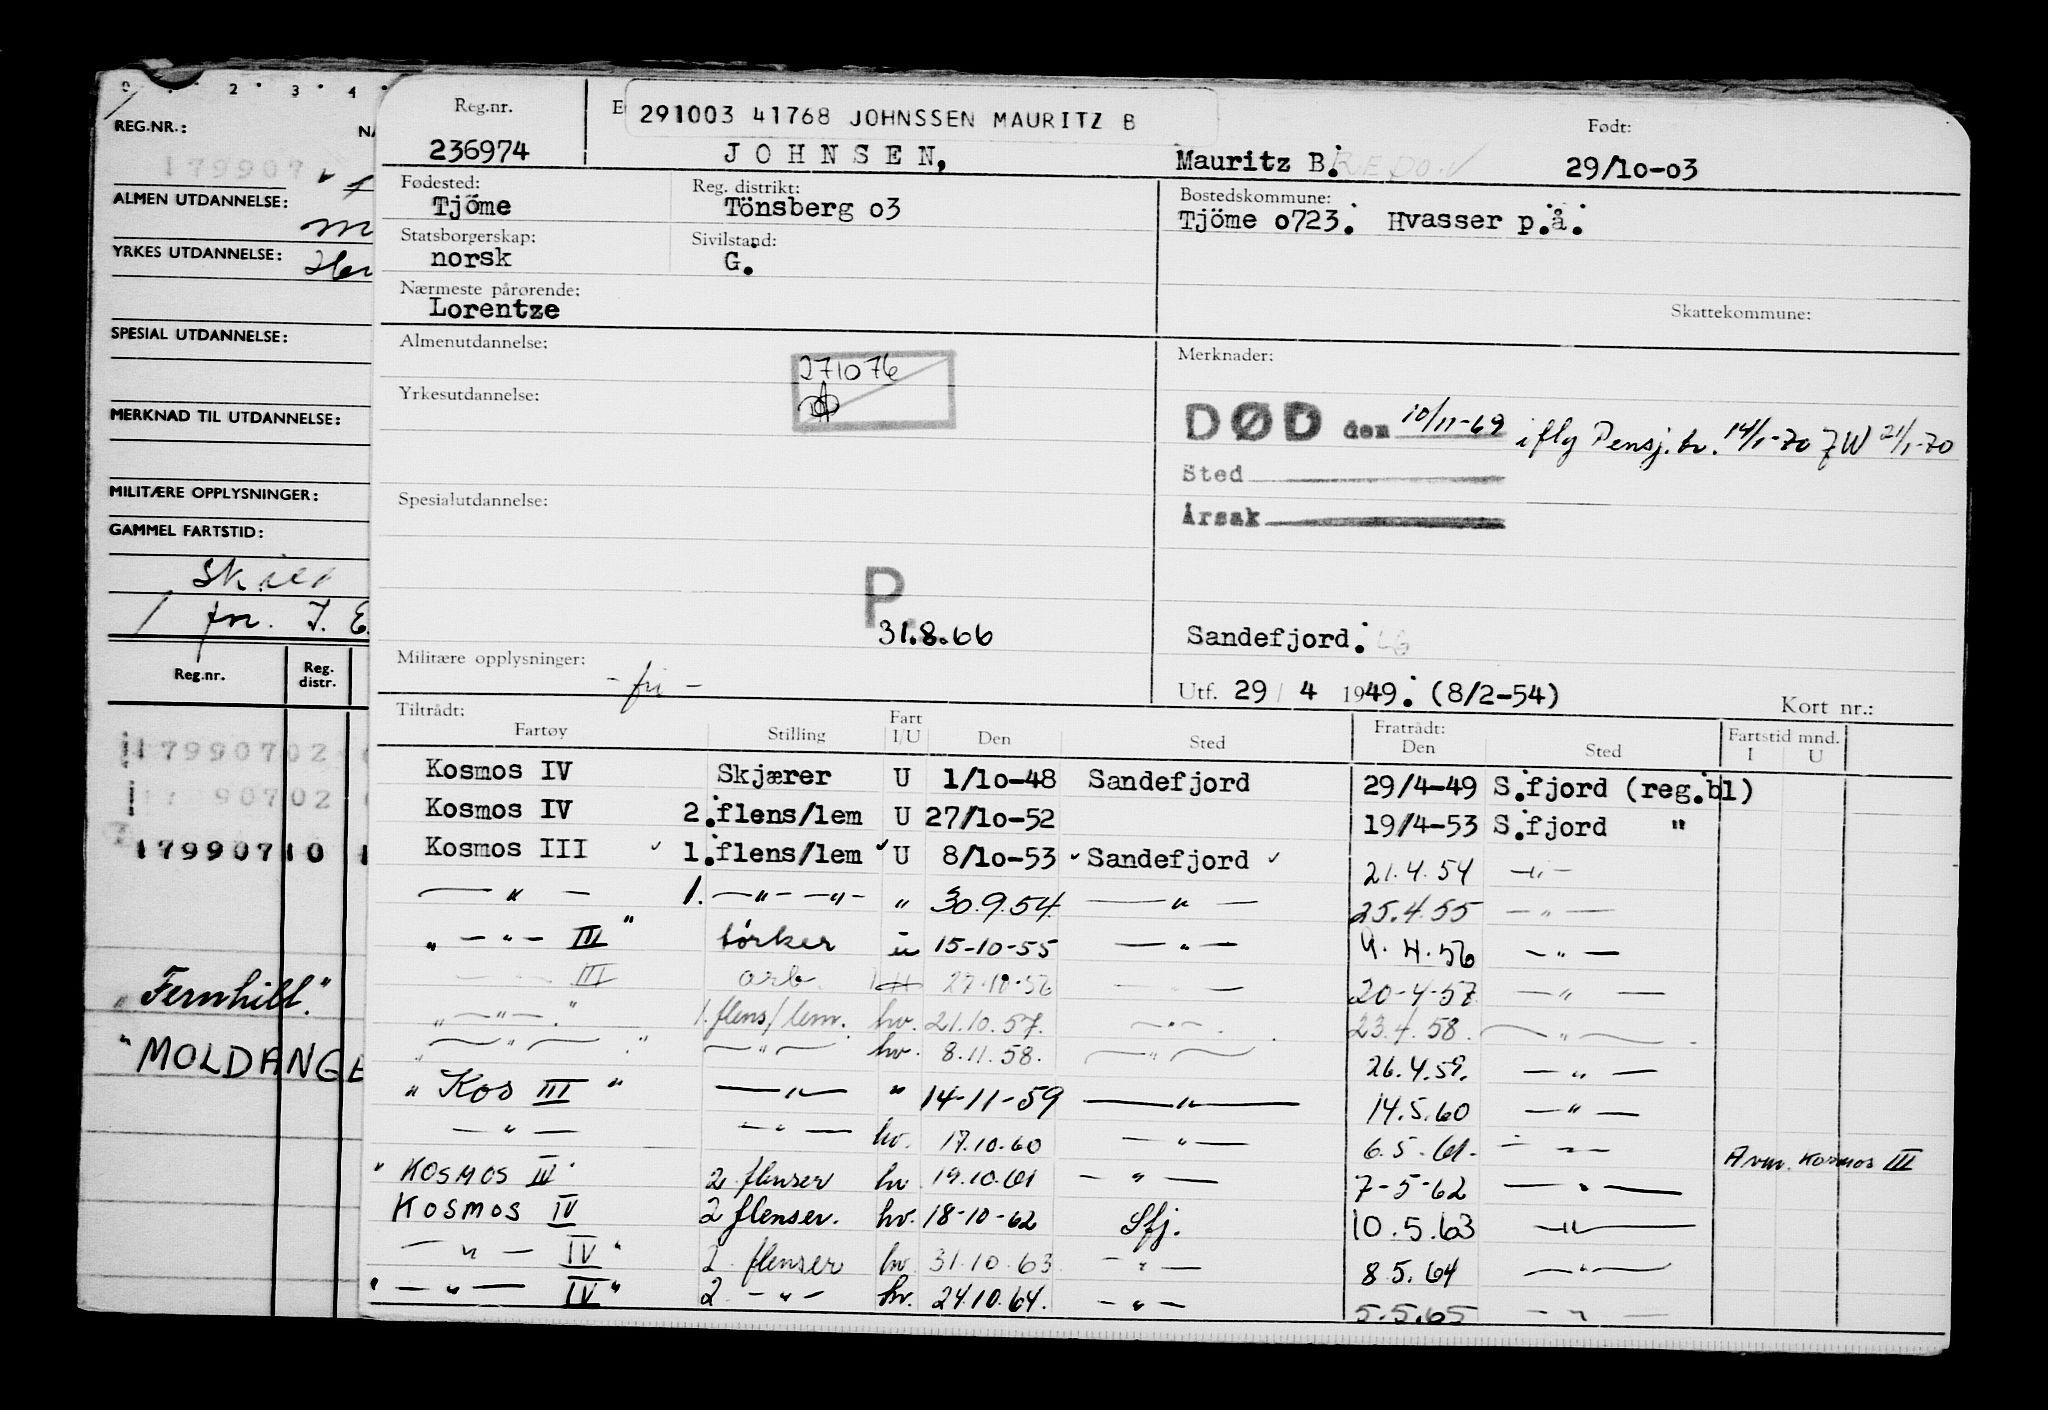 2 3 4
REG.NR.: NA
179907
ALMEN UTDANNELSE:
YRKES UTDANNELSE:
SPESIAL UTDANNELSE:
MERKNAD TIL UTDANNELSE:
MILITÆRE OPPLYSNINGER:
GAMMEL FARTSTID:
Reg.nr. Reg. distr.
17990702
790702
17990710 1
"Fernhill."
"MOLDANGE
Reg.nr. E 291003 41768 JOHNSSEN MAURITZ B Født:
236974 JOHNSEN, Mauritz B. 29/10-03
Fødested: Reg. distrikt: Bostedskommune:
Tjöme Tönsberg o3 Tjöme o723. Hvasser p.å.
Statsborgerskap: Sivilstand:
norsk G.
Nærmeste pårørende:
Lorentze Skattekommune:
Almenutdannelse: Merknader:
271076
Yrkesutdannelse:
DØD den 10/11-69 iflg Pensj.tr. 14/1-70 ZW 21/1-70
Sted
Årsak
Spesialutdannelse:
P.
31.8.66
Sandefjord.
Militære opplysninger: - fri -
Utf. 29/4 1949. (8/2-54) Kort nr.:
Tiltrådt: Fratrådt: Fartstid mnd.
Fartøy Stilling Fart I/U Den Sted Den Sted I U
Kosmos IV Skjærer U 1/1o-48 Sandefjord 29/4-49 S.fjord (reg.bl)
Kosmos IV 2.flens/lem U 27/1o-52 19/4-53 S.fjord "
Kosmos III ✓ 1.flens/lem ✓ U 8/1o-53 ✓ Sandefjord ✓ 21.4.54 -"-
— " — 1. —"— —"— " 30.9.54. — " — 25.4.55 — " —
" — " — III " törker u 15-10-55 — " — 9.4.56 — " —
III arb. 20-4-57 — " —
" — " — . " 1. flens/lem. hv. 21.10.57. — " — . 23.4.58. — " — .
— " — " — " — hv. 8.11.58. — " — 26.4.59. — " —
" Kos III " — " — " 14-11-59 — " — 14.5.60 — " —
— " — — " — hv. 17.10.60 — " — 6.5.61. — " —
" KOSMOS IV " 2 flenser hv 19.10.61 — " — 7-5-62 — " — Anm. Kosmos III
KOSMOS IV 2 flenser. hv. 18-10-62 Sfj. 10.5.63 — " —
— " — IV " 2 flenser hv 31.10.63 — " — 8.5.64 — " —
" — " — IV " 2 — " — hv. 24.10.64. — " — 5.5.65 — " —